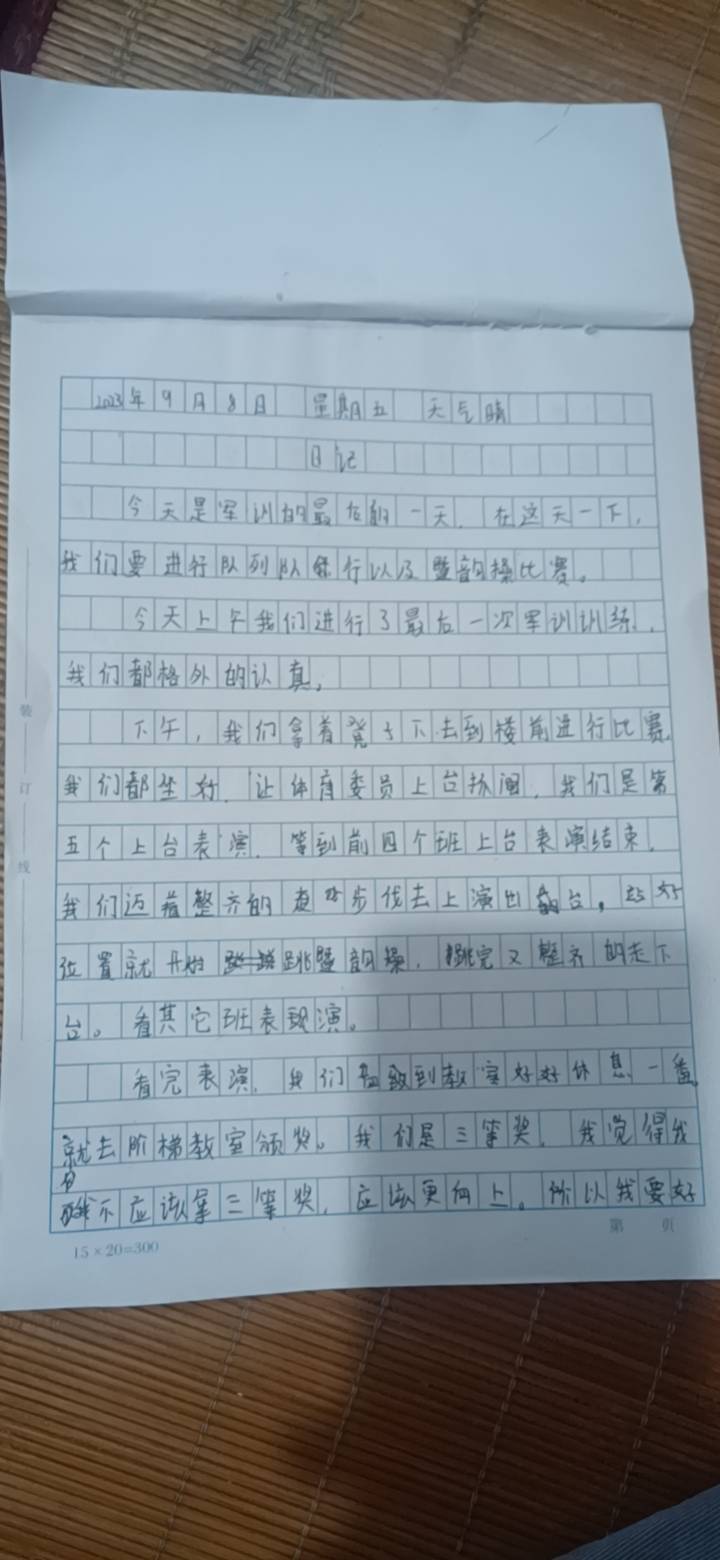 2023年9月8日 星期五 天气晴
日记
今天是军训的最后的一天，在这天一下，
我们要进行队列队行以及韵操比赛。
今天上午我们进行了最后一次军训训练，
我们都格外的认真，
下午，我们拿着凳子下去到楼前进行比赛，
我们都坐好，让体育委员上台抓阄，我们是第
五个上台表演，等到前四个班上台表演结束，
我们迈着整齐的步伐去上演出台，站好
位置就开始跳韵操，跳完又整齐的走下
台。看其它班表演。
看完表演，我们到教室好好休息一番，
就去阶梯教室颁奖。我们是三等奖，我觉得我
不应该拿三等奖，应该更向上。所以我要好
第 页
15×20=300
装
订
线